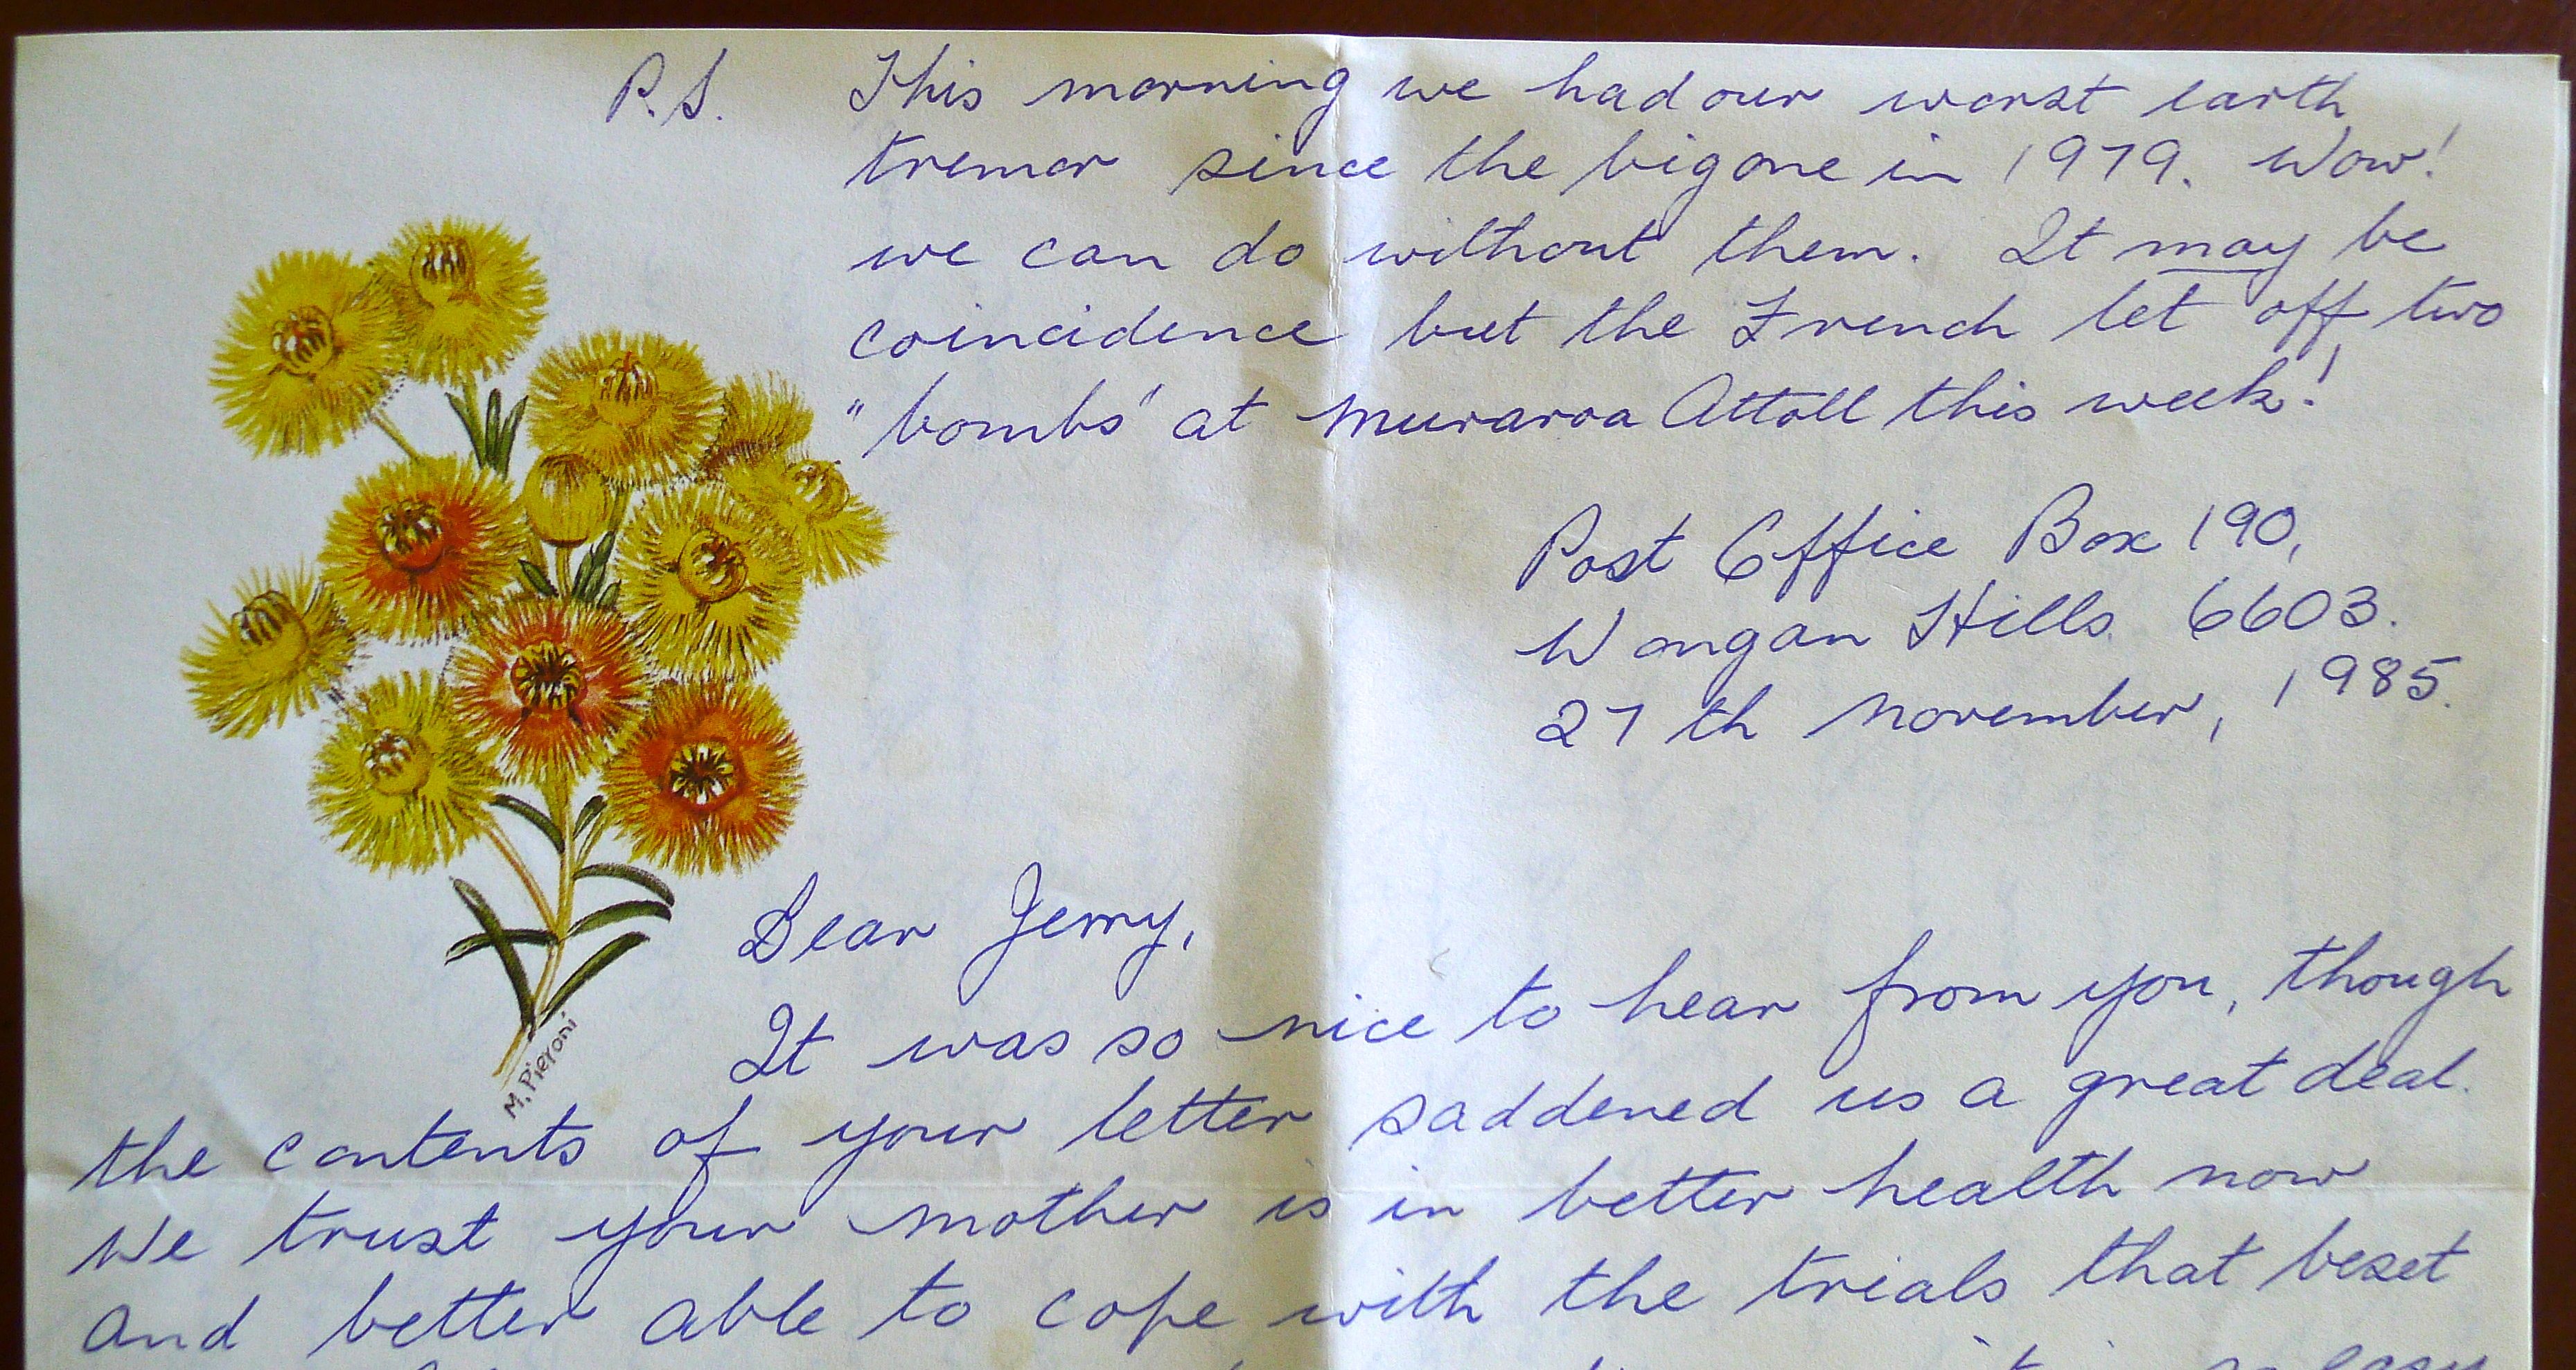 P.S. This morning we had our worst earth
tremor since the big one in 1979. Wow!
we can do without them. It may be
coincidence but the French let off two
"bombs" at Muraroa Attoll this week!
Post Office Box 190,
Wongan Hills 6603.
27th November, 1985.
Dear Jerry,
It was so nice to hear from you, though
M. Pieroni
the contents of your letter saddened us a great deal.
We trust your mother is in better health now
and better able to cope with the trials that beset